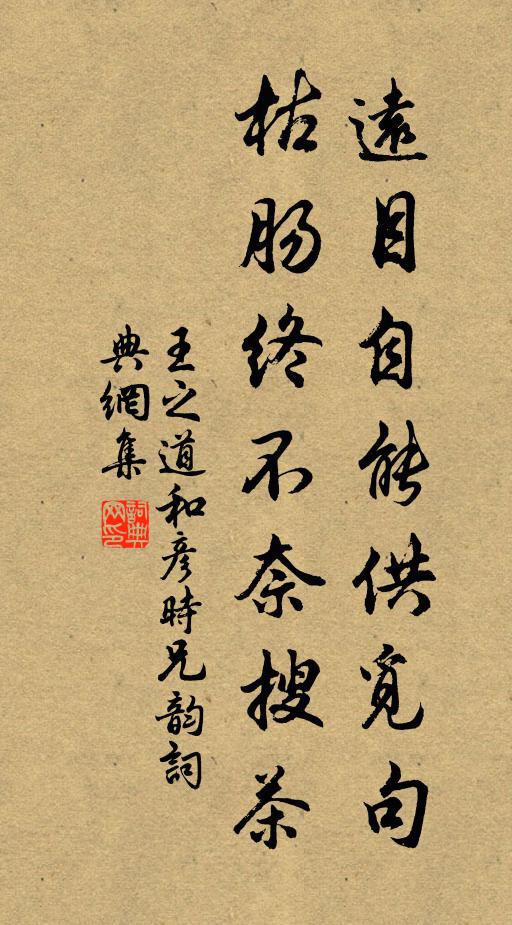 遠目自能供覓句
枯肠終不奈搜茶
王之道和彦時兄韵詞
典網集
詞典网印